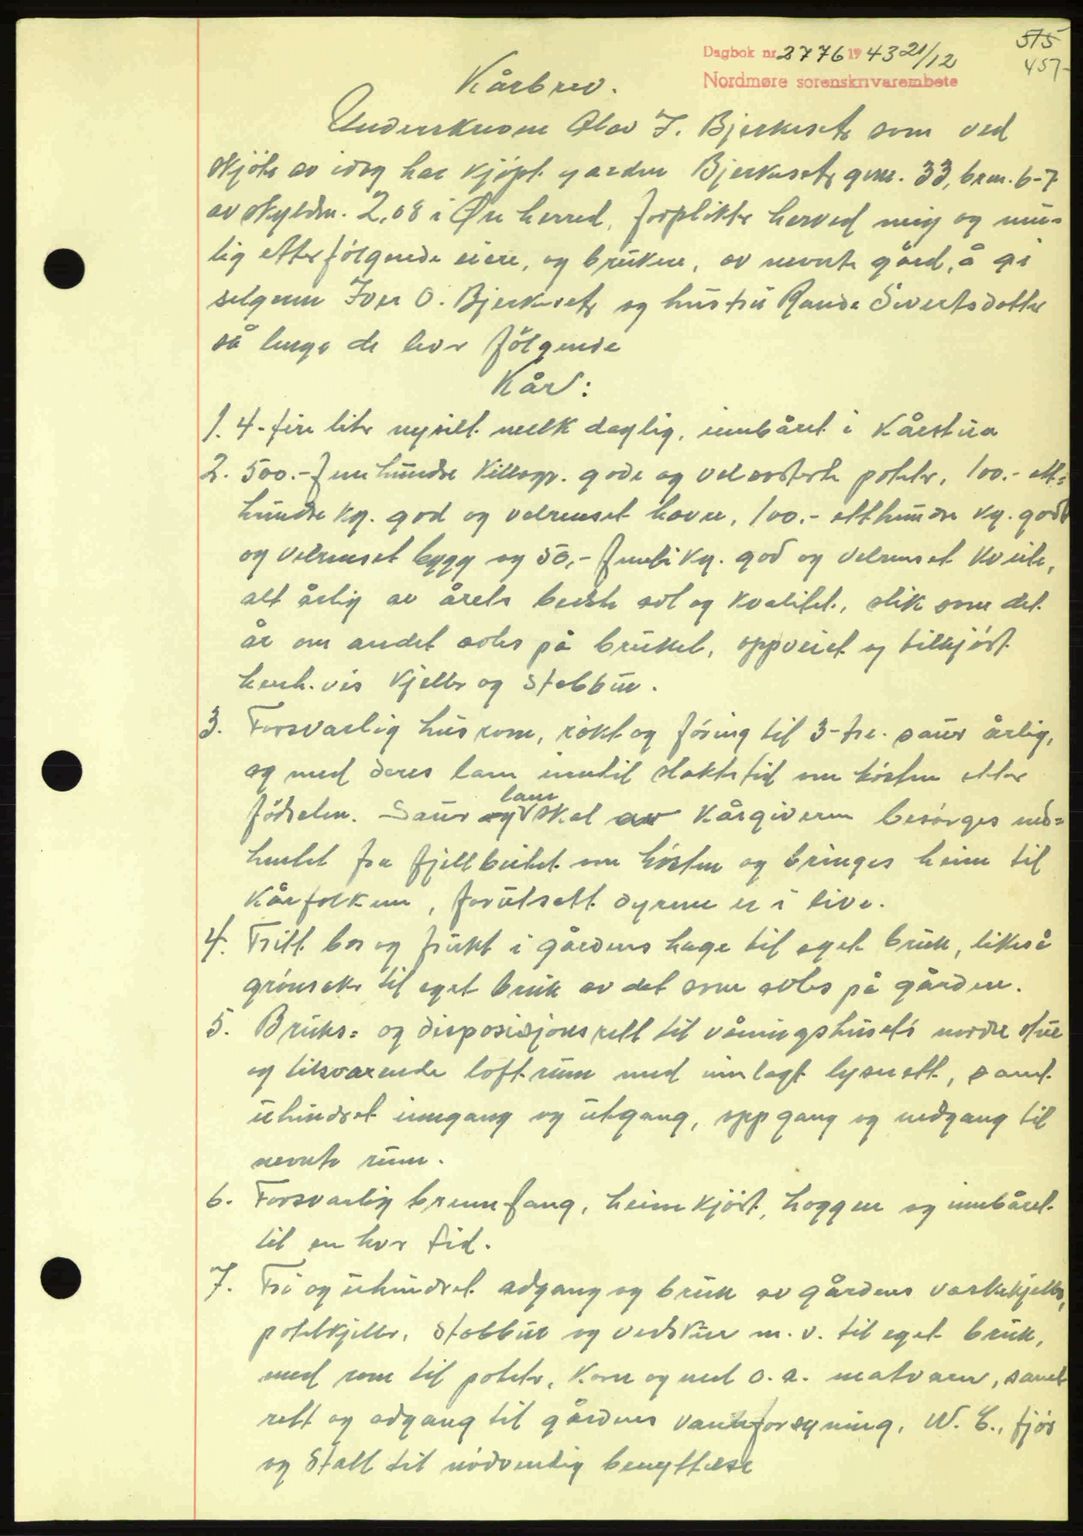 515
457
Dagbok nr. 2776 1943 21/12
Nordmøre sorenskrivarembete
Kårbrev.
Underskrevne Olav I. Bjerkeseth som ved
skjöte av idag har kjöpt garden Bjerkeseth gnr. 33, brnr. 6-7
av skyldm. 2,08 i Øre herred, forplikter herved meg og mu-
lig etterfölgende eiere, og brukere, av nevnte gård, å gi
selgeren Iver O. Bjerkeseth og hustru Randi Sivertsdotter
så lenge de lever fölgende
Kår:
1. 4-fire liter nysilt melk daglig, innbåret i Kårstua
2. 500.- femhundre Killogr. gode og velsorterte poteter, 100.- ett=
hundre kg. god og velrenset havre, 100.- etthundre kg. godt
og velrenset bygg og 50,- femti kg. god og velrenset kveite,
alt årlig av årets beste avl og kvalitet, slik som det
år om andet avles på bruket, oppveiet og tilkjört
henh.vis kjeller og stabbur.
3. Forsvarlig husrom, rökt og fóring til 3-tre. sauer årlig,
og med deres lam inntil slaktetid om hösten etter
födselen. Sauer og lam skal av Kårgiveren besörges ned=
hentet fra fjellbeitet om hösten og bringes heim til
Kårfolkene, forutsatt dyrene er i live.
4. Fritt bær og frukt i gårdens hage til eget bruk, likeså
grönsaker til eget bruk av det som avles på gården.
5. Bruks= og disposisjonsrett til våningshusets nordre stue
og tilsvarende loftrum med innlagt lysnett, samt
uhindret inngang og utgang, oppgang og nedgang til
nevnte rum.
6. Forsvarlig brennfang, heimkjört, hoggen og innbåret
til en hver tid.
7. Fri og uhindret adgang og bruk av gårdens vaskekjeller,
potetkjeller, stabbur og vedskur m.v. til eget bruk,
med rom til poteter, korn og mel o.a. matvarer, samt
rett og adgang til gårdens vannforsyning, W.C., fjös
og stall til nödvendig benyttelse